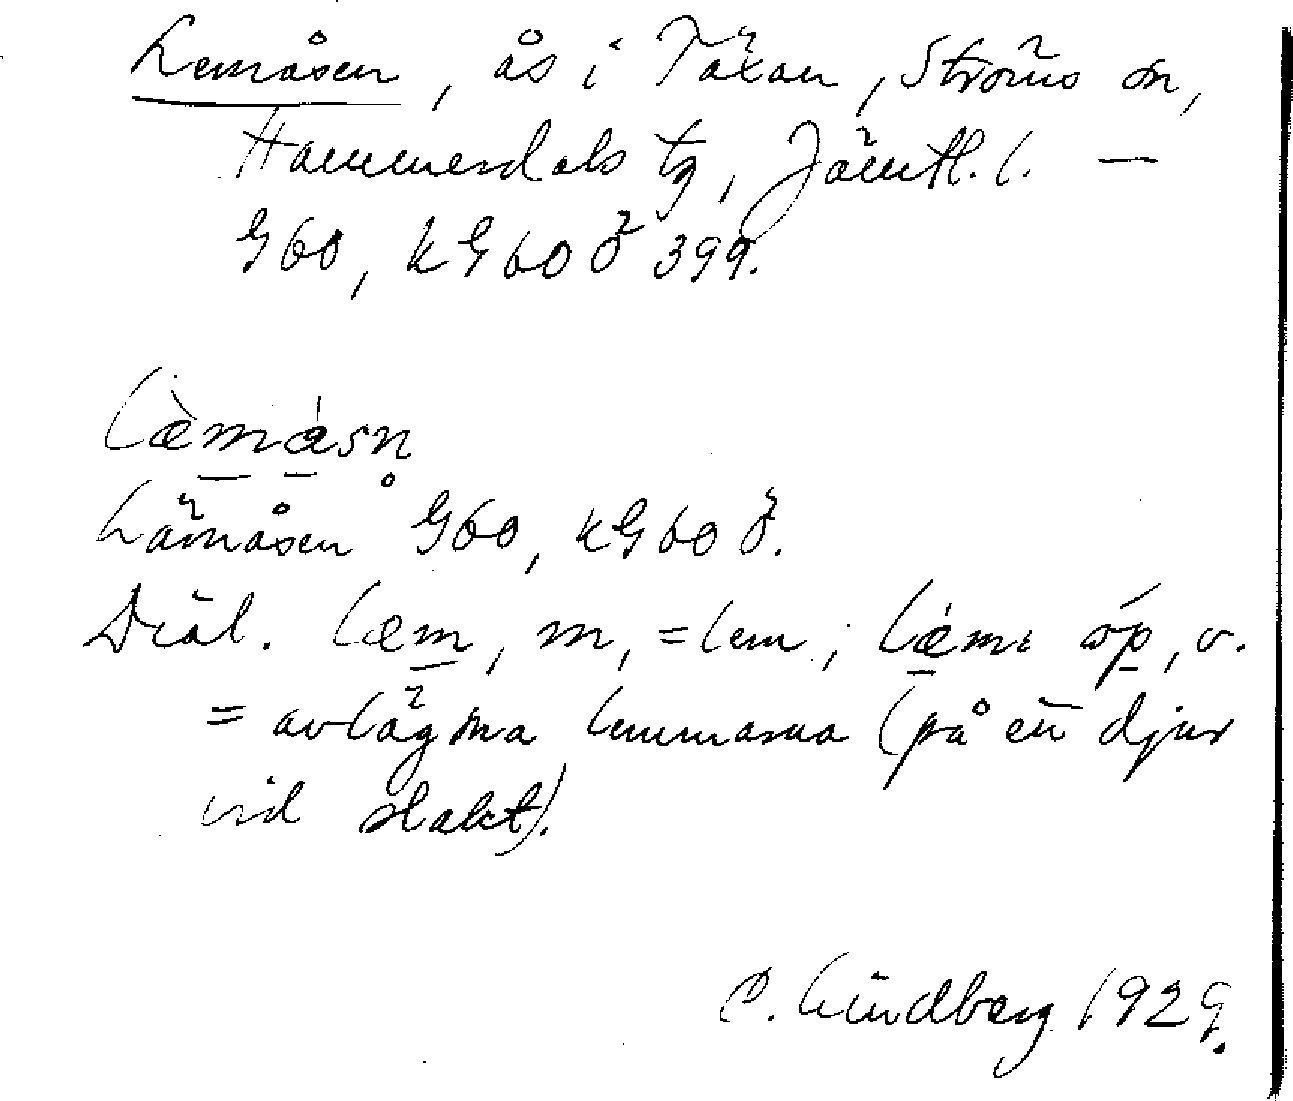 Lemåsen, ås i Täxan, Ströms sn,
Hammerdals tg, Jämtl. l. —
G60, kG60 Ö 399.
læ̀måsn̥
Lämåsen G60, kG60 Ö.
Dial. læm, m, = lem; læ̀mɩ óp, v.
= avlägsna lemmarna (på ett djur
vid slakt).
C. Lindberg 1929.